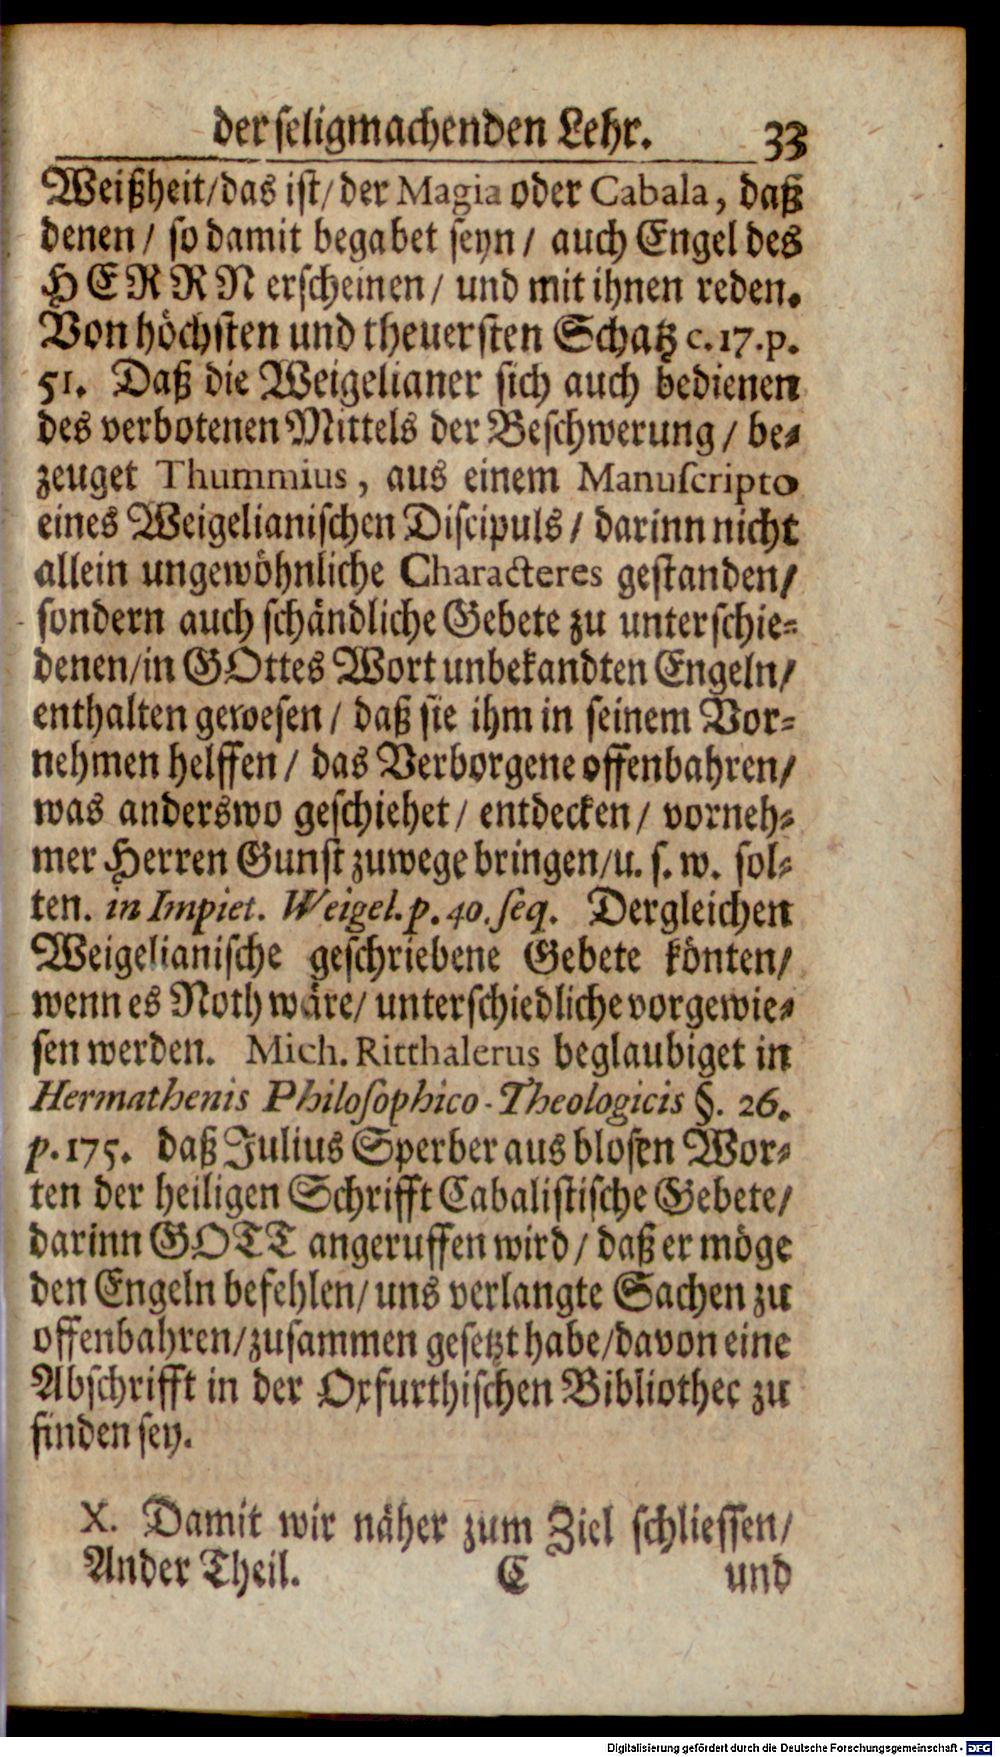 der seligmachenden Lehr. 33
Weißheit/das ist/der Magia oder Cabala, daß
denen / so damit begabet seyn / auch Engel des
HERRN erscheinen / und mit ihnen reden.
Von höchsten und theuersten Schatz c. 17. p.
51. Daß die Weigelianer sich auch bedienen
des verbotenen Mittels der Beschwerung / be-
zeuget Thummius, aus einem Manuscripto
eines Weigelianischen Discipuls / darinn nicht
allein ungewöhnliche Characteres gestanden/
sondern auch schändliche Gebete zu unterschie-
denen/in GOttes Wort unbekandten Engeln/
enthalten gewesen / daß sie ihm in seinem Vor-
nehmen helffen / das Verborgene offenbahren/
was anderswo geschiehet / entdecken / vorneh-
mer Herren Gunst zuwege bringen/u. s. w. sol-
ten. in Impiet. Weigel. p. 40. seq. Dergleichen
Weigelianische geschriebene Gebete könten/
wenn es Noth wäre/ unterschiedliche vorgewie-
sen werden. Mich. Ritthalerus beglaubiget in
Hermathenis Philosophico-Theologicis §. 26.
p. 175. daß Julius Sperber aus blosen Wor-
ten der heiligen Schrifft Cabalistische Gebete/
darinn GOTT angeruffen wird / daß er möge
den Engeln befehlen/ uns verlangte Sachen zu
offenbahren/zusammen gesetzt habe/davon eine
Abschrifft in der Oxfurthischen Bibliothec zu
finden sey.
X. Damit wir näher zum Ziel schliessen/
Ander Theil. C und
Digitalisierung gefördert durch die Deutsche Forschungsgemeinschaft - DFG